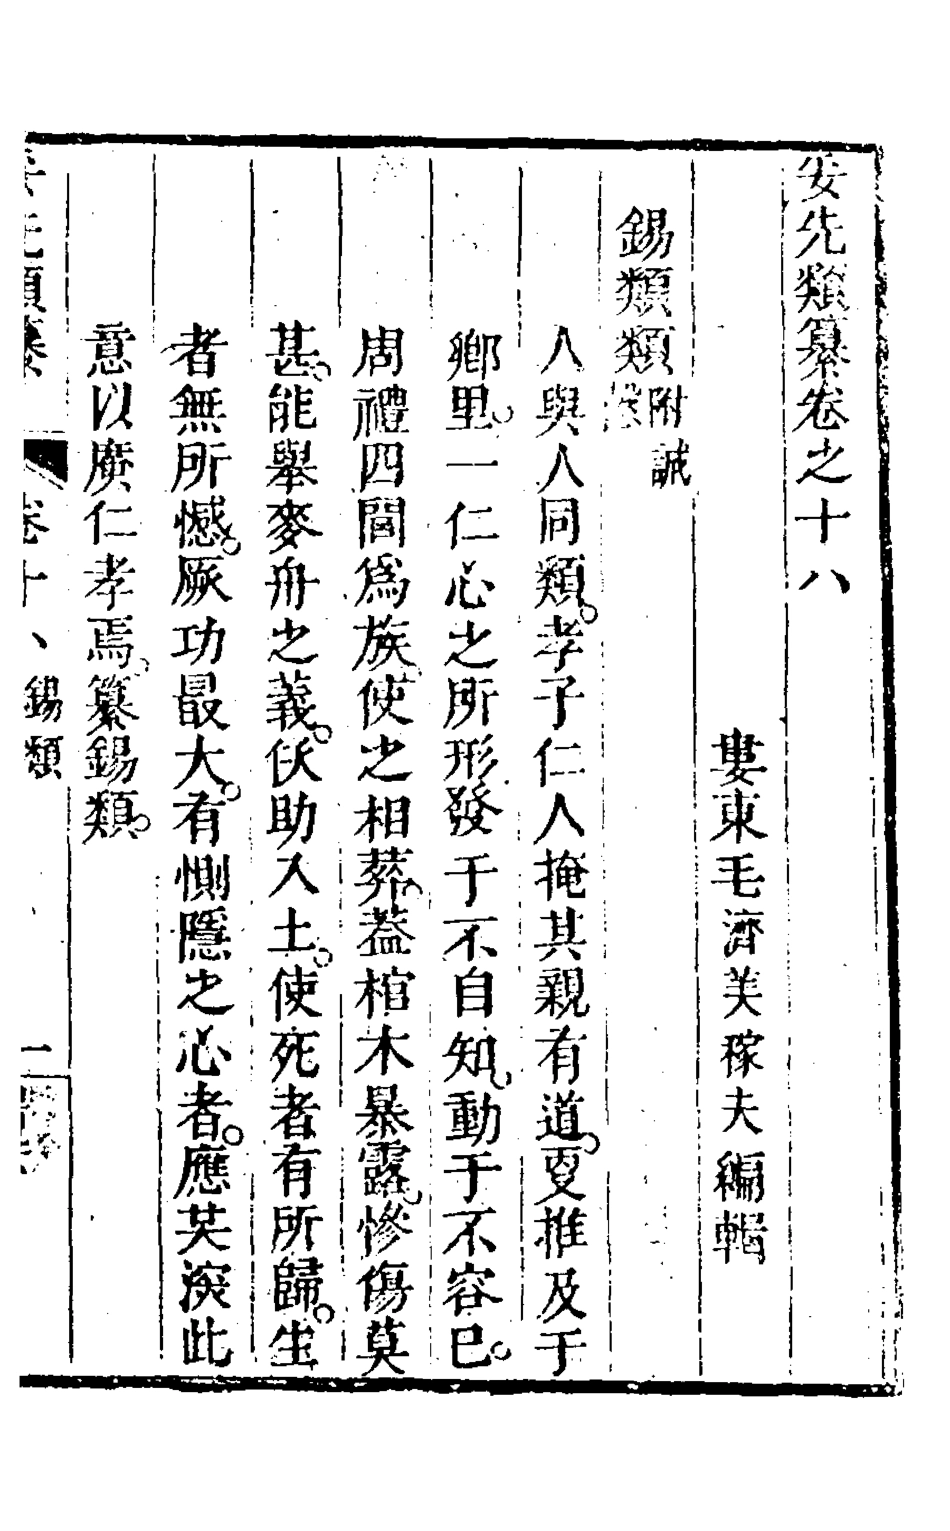 安先類纂卷之十八
婁東毛濟美稼夫編輯
錫類類附誠
人與人同類。孝子仁人掩其親有道。更推及于
鄉里。一仁心之所形發于不自知。動于不容已。
周禮四閭爲族。使之相葬。蓋棺木暴露。慘傷莫
甚。能舉麥舟之義。伙助入土。使死者有所歸。生
者無所憾。厥功最大。有惻隱之心者。應共深此
意以廣仁孝焉。纂錫類。
錫類